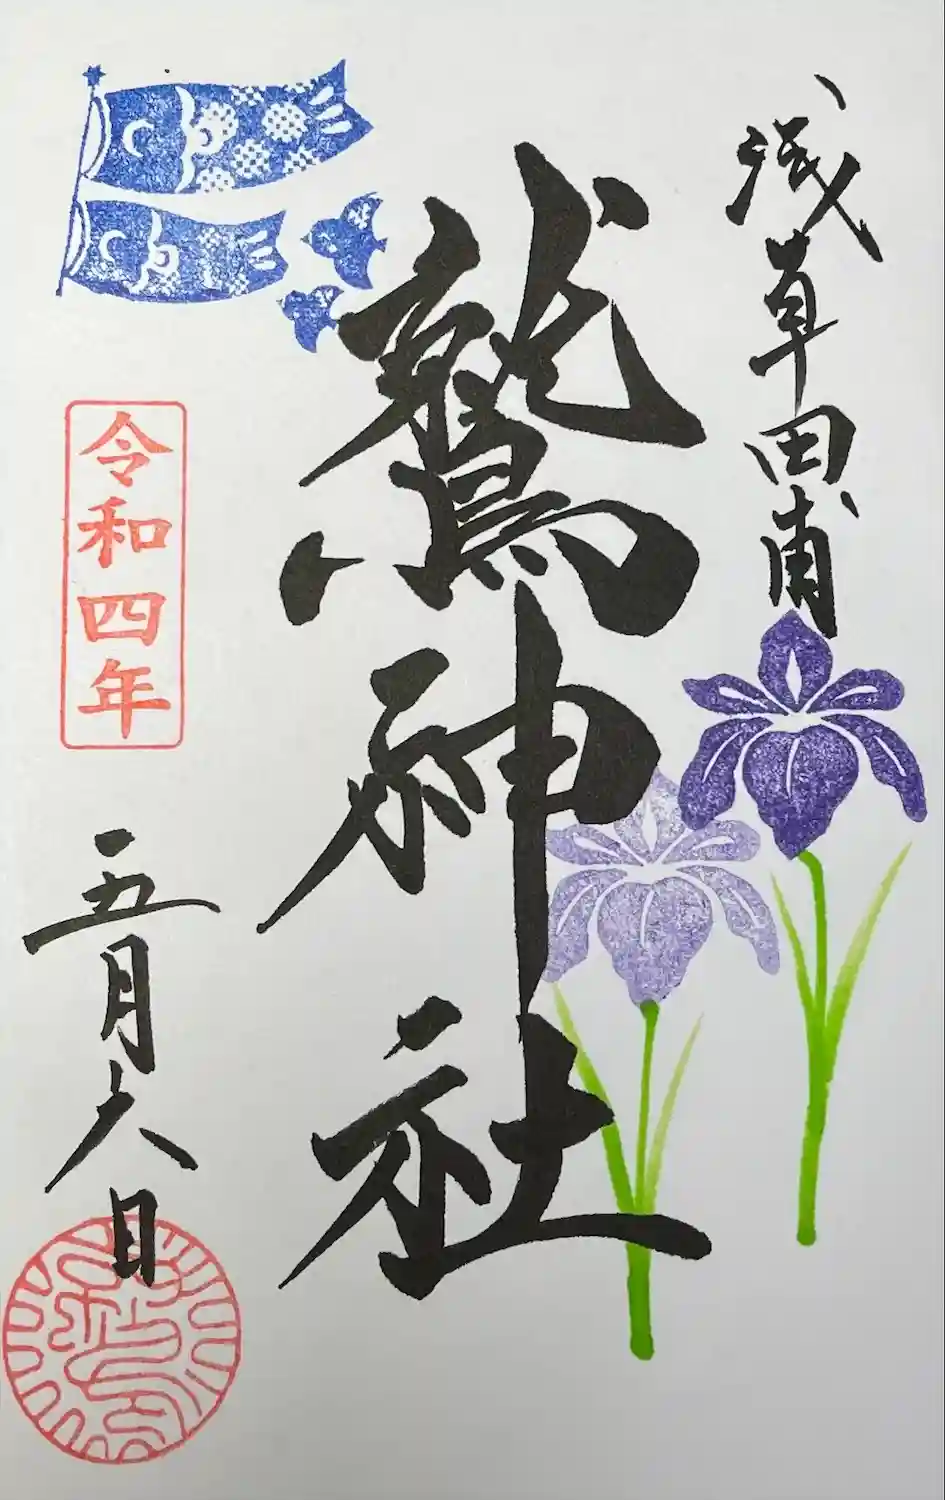 浅草田甫
鷲神社
令和四年
五月六日